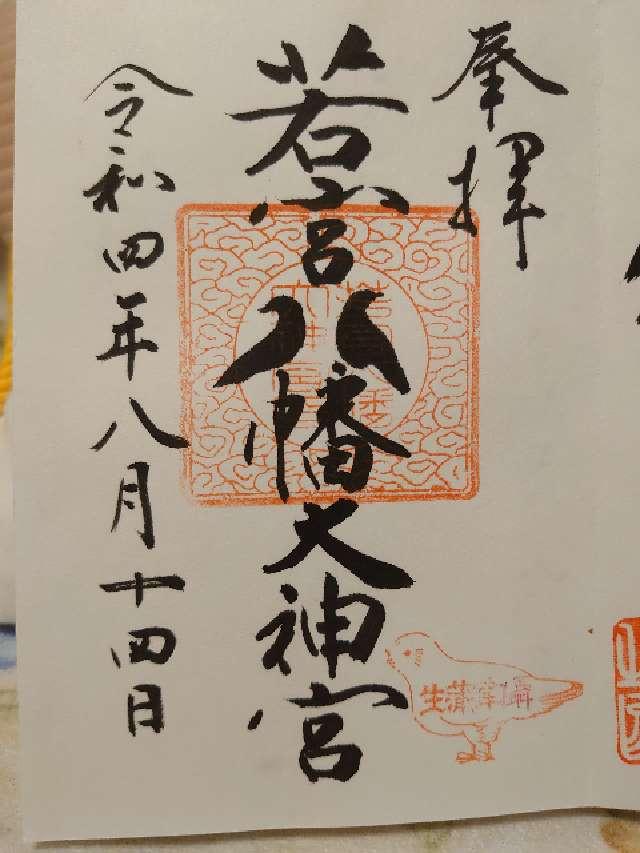 奉拝
若宮八幡大神宮
令和四年八月十四日